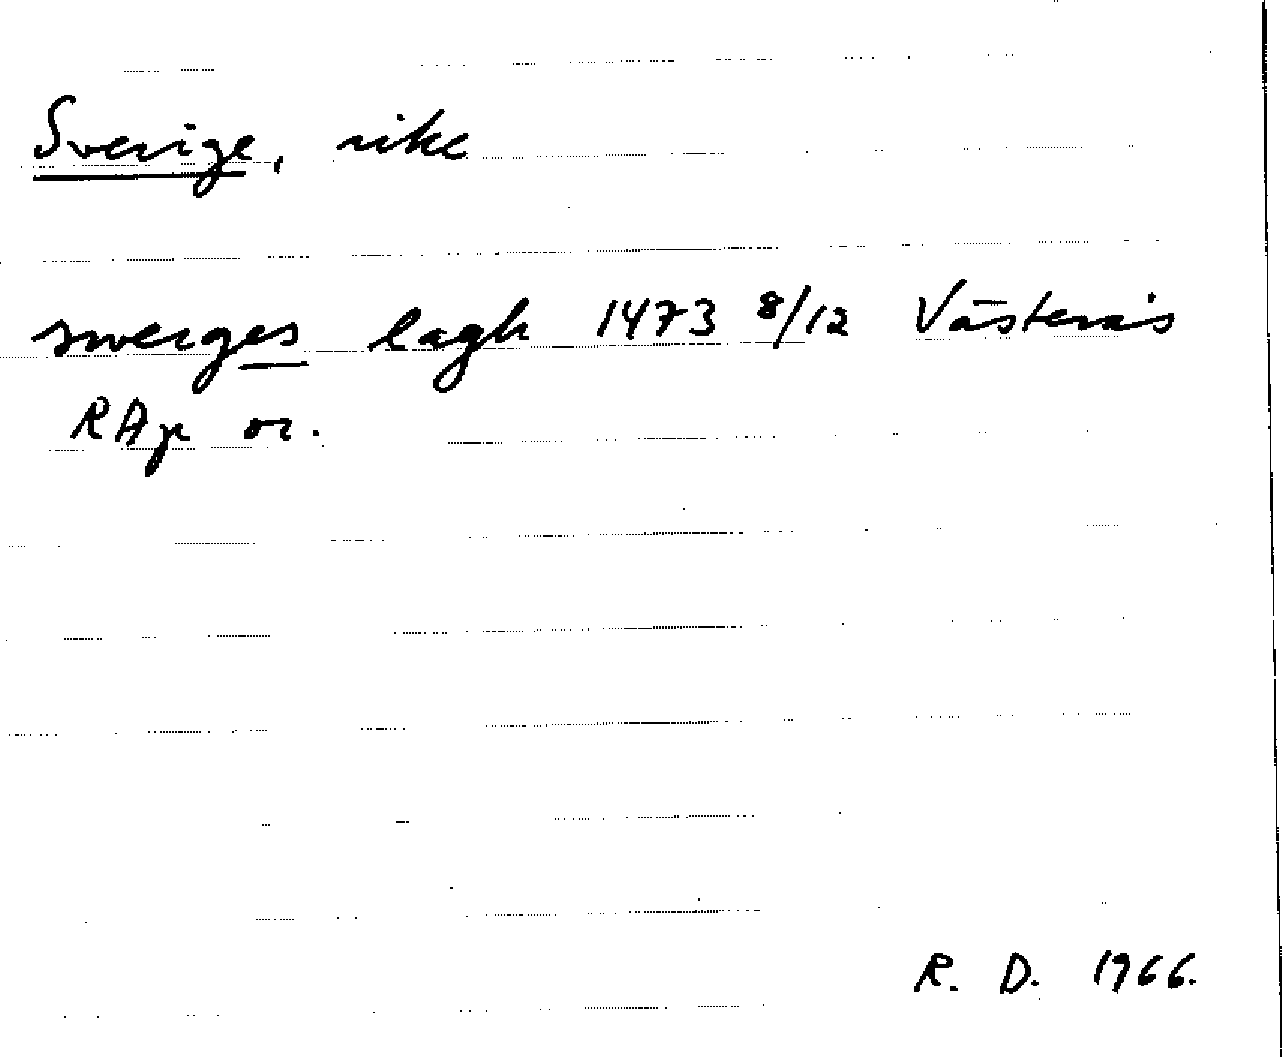 Sverige, rike
swerges lagh 1473 8/12 Västerås
RAp or.
R. D. 1966.